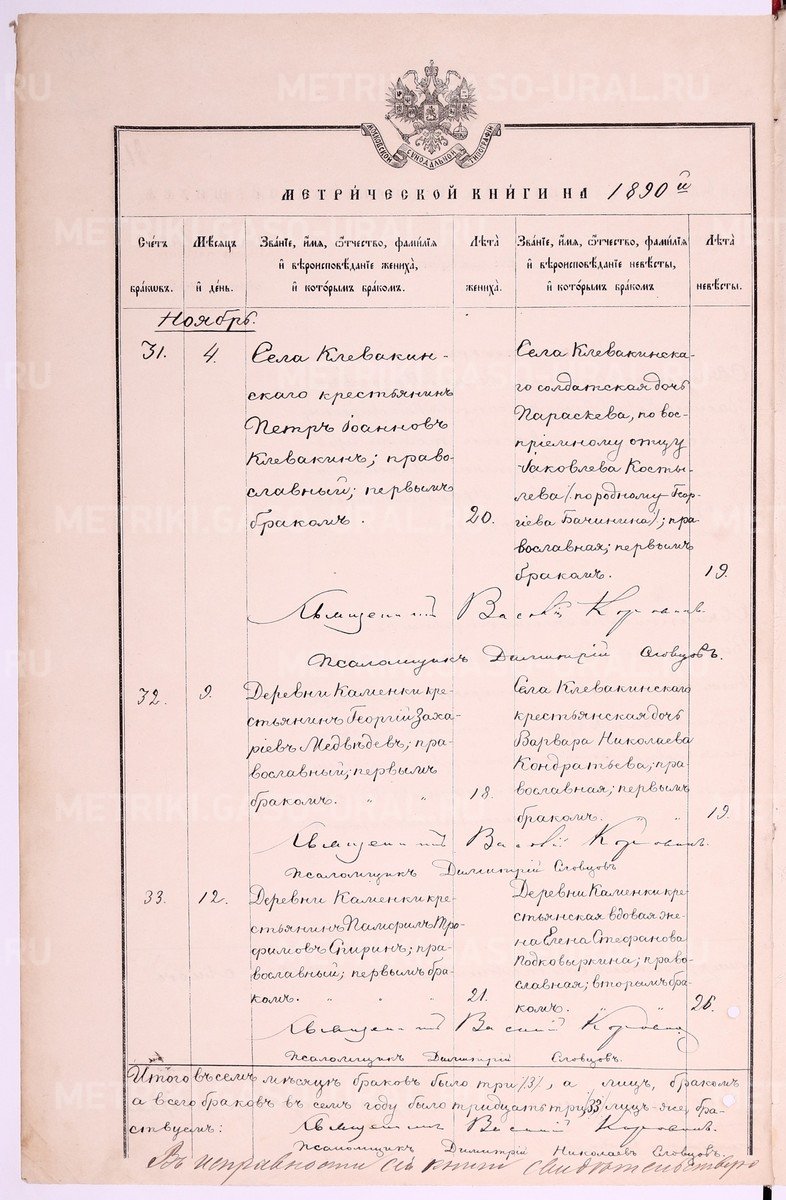 МОСКОВСКОЙ СѴНОДАЛЬНОЙ ТИПОГРАФІИ
МЕТРИ́ЧЕСКОЙ КНИ́ГИ НА 1890й
Сче́тъ бра́кѡвъ.
Мѣ́сѧцъ и҆ де́нь.
Зва́нїе, и҆́мѧ, ѻ҆́тчество, фамѝлїѧ
и҆ вѣроисповѣ́данїе жениха̀,
и҆ кото́рымъ бра́комъ.
Лѣ̀та жениха̀.
Зва́нїе, и҆́мѧ, ѻ҆́тчество, фамѝлїѧ
и҆ вѣроисповѣ́данїе невѣ́сты,
и҆ кото́рымъ бра́комъ
Лѣ̀та невѣ́сты.
Ноябрь.
31.
4.
Села Клевакин-
скаго крестьянинъ
Петръ Іоанновъ
Клевакинъ; право-
славный; первымъ
бракомъ.
20.
Села Клевакинска-
го солдатская дочь
Параскева, по вос-
пріемному отцу
Іаковлева Косты-
лева /по родному Геор-
гіева Бачинина/; пра-
вославная; первымъ
бракомъ.
19.
Священникъ Василій
Псаломщикъ Димитрій Словцовъ.
32.
9.
Деревни Каменки кре-
стьянинъ Георгій Заха-
ріевъ Медвѣдевъ; пра-
вославный; первымъ
бракомъ. " "
18.
Села Клевакинскаго
крестьянская дочь
Варвара Николаева
Кондратьева; пра-
вославная; первымъ
бракомъ. " "
19.
Священникъ Василій
Псаломщикъ Димитрій Словцовъ
33.
12.
Деревни Каменки кре-
стьянинъ Памфилъ Тро-
фимовъ Спиринъ; пра-
вославный; первымъ бра-
комъ. " " "
21.
Деревни Каменки кре-
стьянская вдовая же-
на Елена Стефанова
Подковыркина; право-
славная; вторымъ бра-
комъ. " "
26.
Священникъ Василій
Псаломщикъ Димитрій Словцовъ.
Итого въ семъ мѣсяцѣ браковъ было три /3/, а лицъ, бракомъ
а всего браковъ въ семъ году было тридцать три /33/ лицъ-же, бра-
ствуемъ: Священникъ Василій
Псаломщикъ Димитрій Николаевъ Словцовъ.
Въ исправности сей книги свидѣтельствую